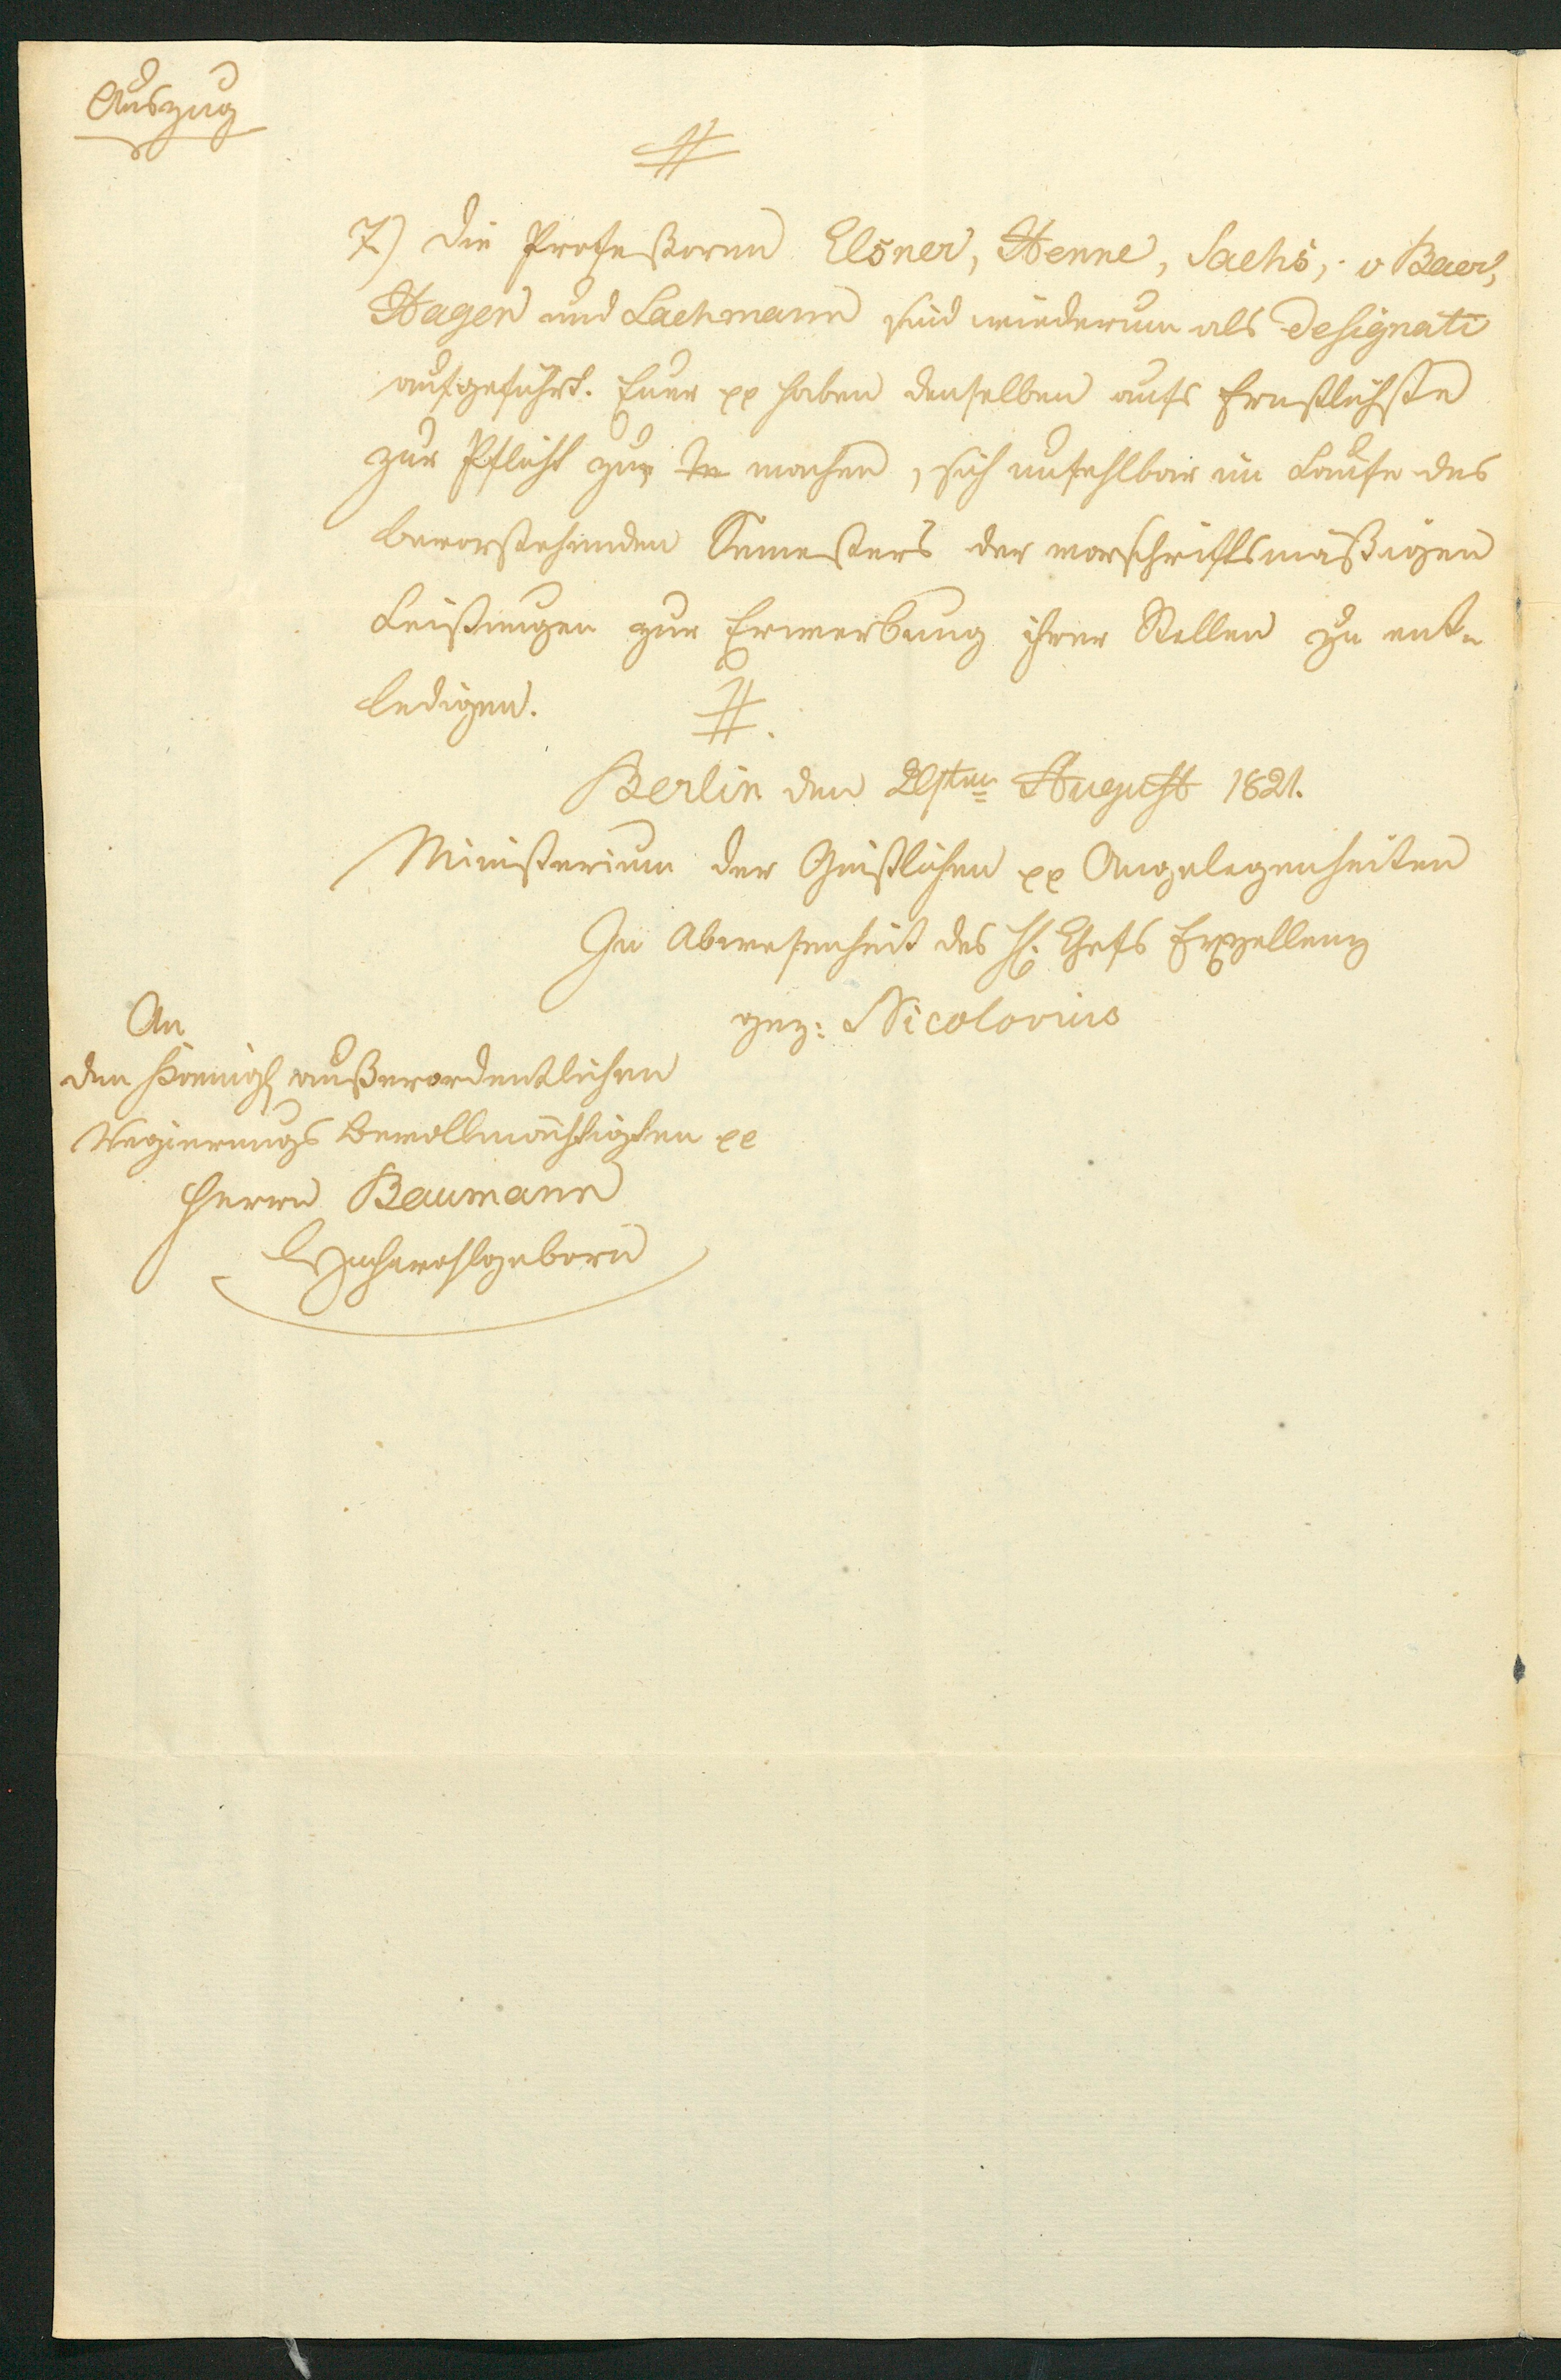 Auszug
#
7) die Profeßoren Elsner, Henne, Sachs, v Baer,
Hagen und Lachmann sind wiederum als Designati
aufgeführt. Euer pp haben denselben aufs Ernstlichste
zur Pflicht zu machen, sich unfehlbar im Laufe des
bevorstehenden Semesters der vorschriftsmäßigen
Leistungen zur Erwerbung ihrer Stellen zu ent-
ledigen. #.
Berlin den 21sten August 1821.
Ministerium der Geistlichen pp Angelegenheiten
In Abwesenheit des H. Chefs Exzellenz
gez: Nicolovius
An
den Koenigl außerordentlichen
Regierungs Bevollmächtigten pp
Herrn Baumann
Hochwohlgeborn